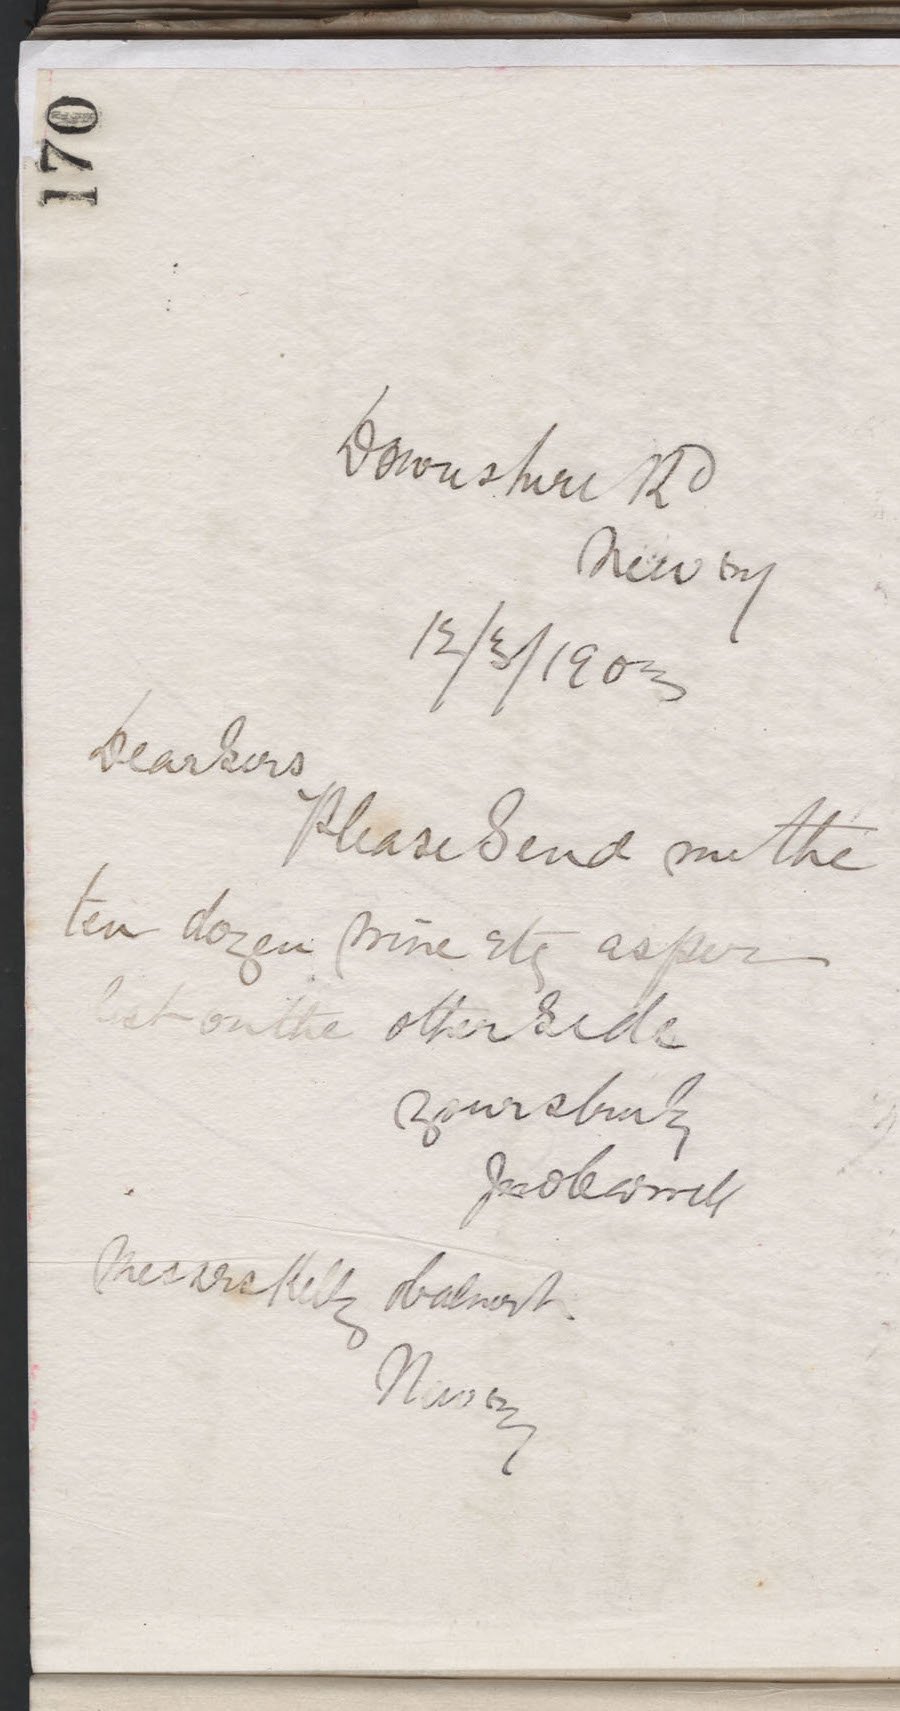 170
Downshire Rd
Newry
12/3/1903
Dear Sirs
Please Send me the
ten dozen wine etc as per
list on the other Side
Yours truly
Jno
Messrs Kelly
Newry